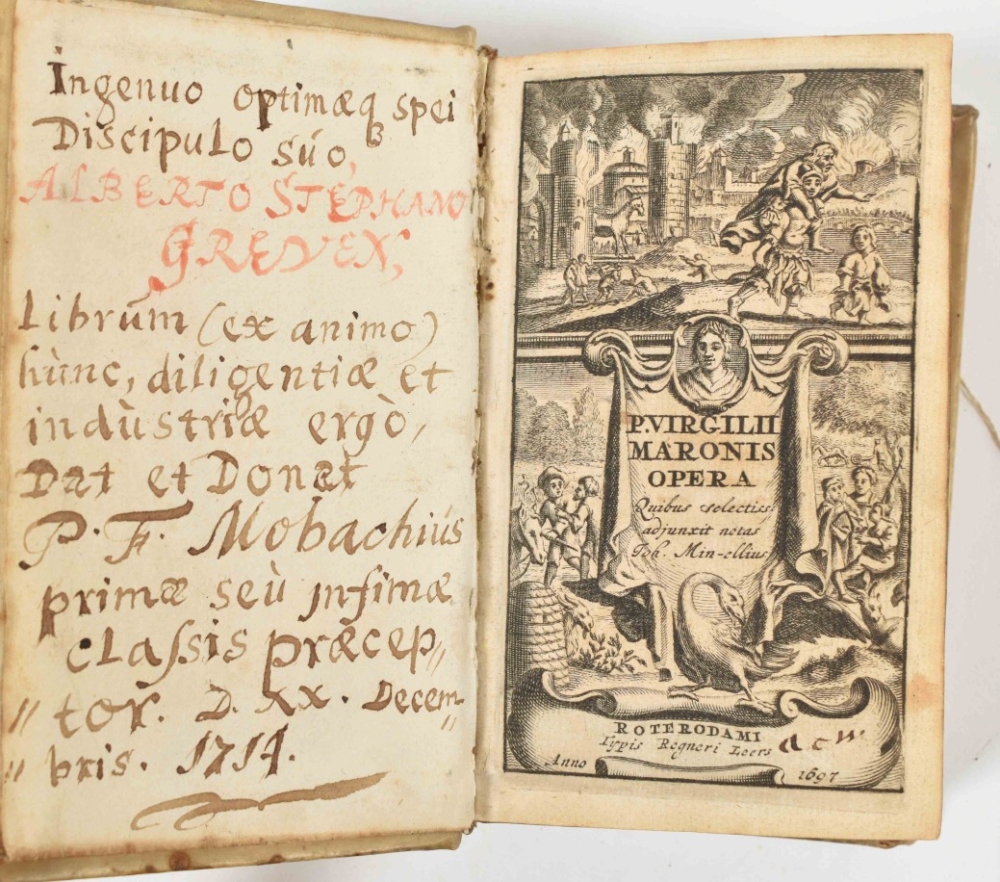 Ingenuo optimæq₃ spei
Discipulo súo,
ALBERTO STEPHANO
GREVEN,
Librúm (ex animo)
húnc, diligentiæ et
indùstriæ ergò,
Dat et Donat
P. F. Mobachiús
primæ seù jnfimæ
classis præcep„
„tor. D. XX. Decem„
„bris. 1714.
P. VIRGILII
MARONIS
OPERA
Quibus selectiss.
adjunxit notas
Joh. Min-ellius
ROTERODAMI
Typis Regneri Leers
Anno 1697